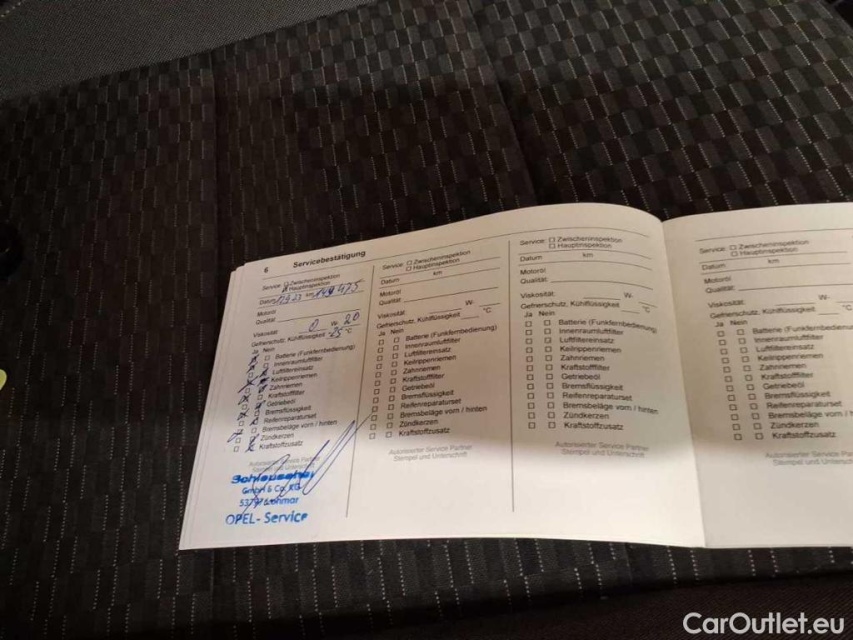 6 Servicebestätigung
Service: Zwischeninspektion
Hauptinspektion
Datum km 149 475
Motoröl
Qualität
Viskosität: 0 W- 20
Gefrierschutz, Kühlflüssigkeit -25 °C
Ja Nein
Batterie (Funkfernbedienung)
Innenraumluftfilter
Luftfiltereinsatz
Keilrippenriemen
Zahnriemen
Kraftstofffilter
Getriebeöl
Bremsflüssigkeit
Reifenreparaturset
Bremsbeläge vorn / hinten
Zündkerzen
Kraftstoffzusatz
Autorisierter Service Partner
Stempel und Unterschrift
GmbH & Co. KG
Lohmar
OPEL - Service
Service: Zwischeninspektion
Hauptinspektion
Datum km
Motoröl
Qualität
Viskosität: W-
Gefrierschutz, Kühlflüssigkeit °C
Ja Nein
Batterie (Funkfernbedienung)
Innenraumluftfilter
Luftfiltereinsatz
Keilrippenriemen
Zahnriemen
Kraftstofffilter
Getriebeöl
Bremsflüssigkeit
Reifenreparaturset
Bremsbeläge vorn / hinten
Zündkerzen
Kraftstoffzusatz
Autorisierter Service Partner
Stempel und Unterschrift
Service: Zwischeninspektion
Hauptinspektion
Datum km
Motoröl
Qualität
Viskosität: W-
Gefrierschutz, Kühlflüssigkeit °C
Ja Nein
Batterie (Funkfernbedienung)
Innenraumluftfilter
Luftfiltereinsatz
Keilrippenriemen
Zahnriemen
Kraftstofffilter
Getriebeöl
Bremsflüssigkeit
Reifenreparaturset
Bremsbeläge vorn / hinten
Zündkerzen
Kraftstoffzusatz
Autorisierter Service Partner
Stempel und Unterschrift
Service: Zwischeninspektion
Hauptinspektion
Datum km
Motoröl
Qualität
Viskosität: W-
Gefrierschutz, Kühlflüssigkeit °C
Ja Nein
Batterie (Funkfernbedienung
Innenraumluftfilter
Luftfiltereinsatz
Keilrippenriemen
Zahnriemen
Kraftstofffilter
Getriebeöl
Bremsflüssigkeit
Reifenreparaturset
Bremsbeläge vorn / h
Zündkerzen
Kraftstoffzusatz
Autorisierter Service
Stempel und Unters
CarOutlet.eu